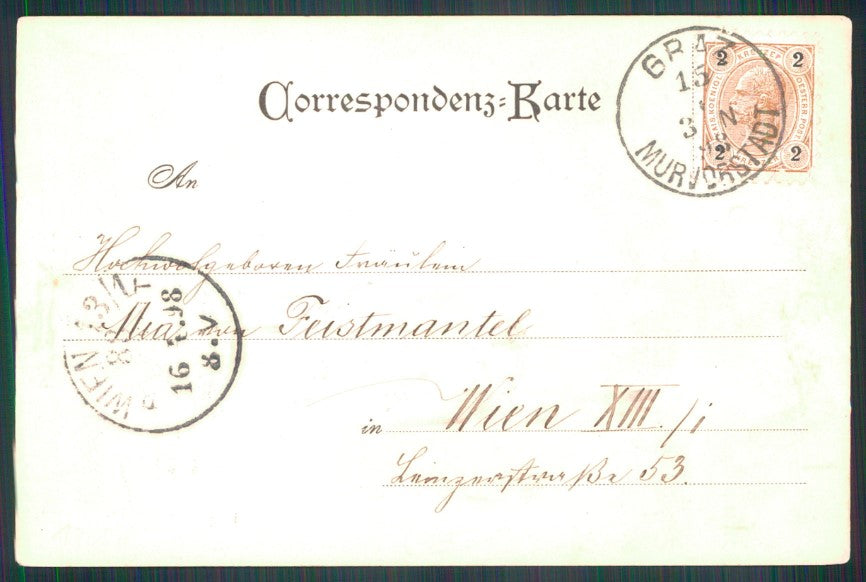 Correspondenz-Karte
GRAZ
15
3 N
98
MURVORSTADT
2 2
2 2
KREUZER
OESTERR. POST
An
Hochwohlgeboren Fräulein
Mia von Feistmantel
WIEN 13/1
16 7.98
8.V
in Wien XIII./i
Lainzerstraße 53.